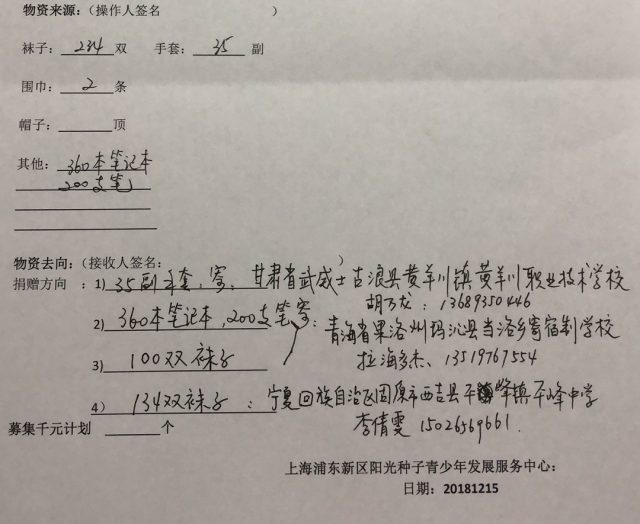 物资来源：（操作人签名 ）
袜子：234双 手套：35副
围巾：2条
帽子： 顶
其他：360本笔记本
200支笔
物资去向：（接收人签名： ）
捐赠方向：1）35副手套，寄，甘肃省武威士古浪县黄羊川镇黄羊川职业技术学校
胡乃龙：13689350446
2）360本笔记本，200支笔寄：青海省果洛州玛沁县当洛乡寄宿制学校
3）100双袜子 拉海多杰、13519767554
4）134双袜子：宁夏回族自治区固原市西吉县平峰镇平峰中学
募集千元计划 个 李倩雯 15026569661.
上海浦东新区阳光种子青少年发展服务中心：
日期：20181215